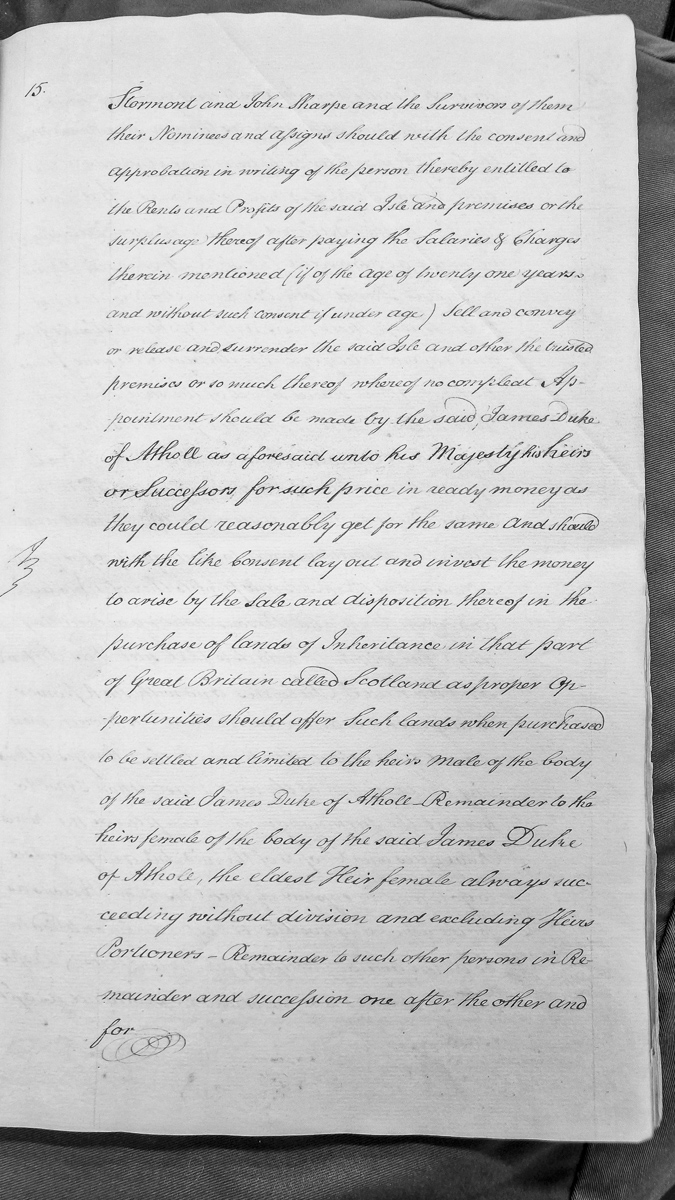 15.
Stormont and John Sharpe and the Survivors of them
their Nominees and assigns should with the consent and
approbation in writing of the person thereby entitled to
the Rents and Profits of the said Isle and premises or the
surplusage thereof after paying the Salaries & Charges
therein mentioned (if of the age of twenty one years
and without such consent if under age) Sell and convey
or release and surrender the said Isle and other the trusted
premises or so much thereof whereof no compleat Ap-
-pointment should be made by the said James Duke
of Atholl as aforesaid unto his Majesty his heirs
or Successors for such price in ready money as
they could reasonably get for the same and should
with the like Consent lay out and invest the money
to arise by the Sale and disposition thereof in the
purchase of lands of Inheritance in that part
of Great Britain called Scotland as proper Op-
-pertunities should offer Such lands when purchased
to be settled and limited to the heirs male of the body
of the said James Duke of Atholl - Remainder to the
heirs female of the body of the said James Duke
of Atholl, the eldest Heir female always suc-
ceeding without division and excluding Heirs
Portioners - Remainder to such other persons in Re-
mainder and succession one after the other and
for